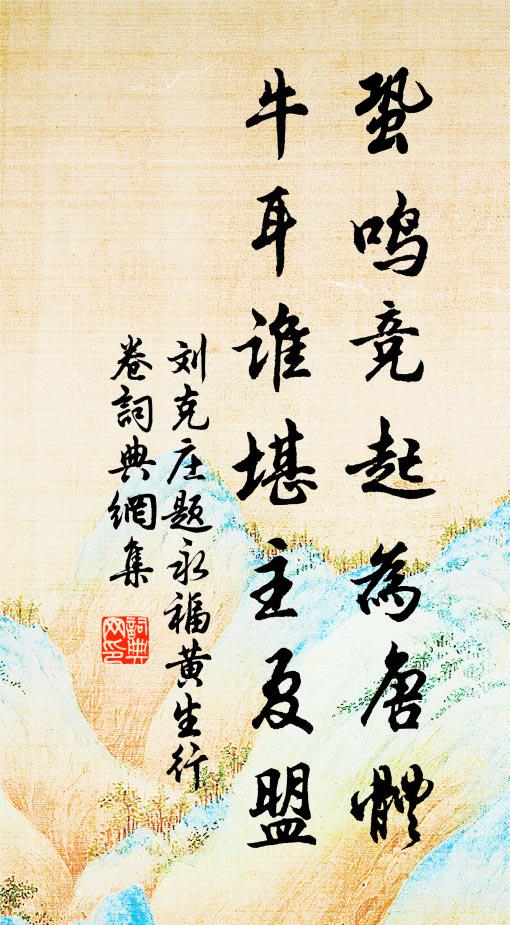 蛩鳴竞起為唐體
牛耳谁堪主夏盟
刘克庄题永福黄生行
卷詞典網集
詞典网印